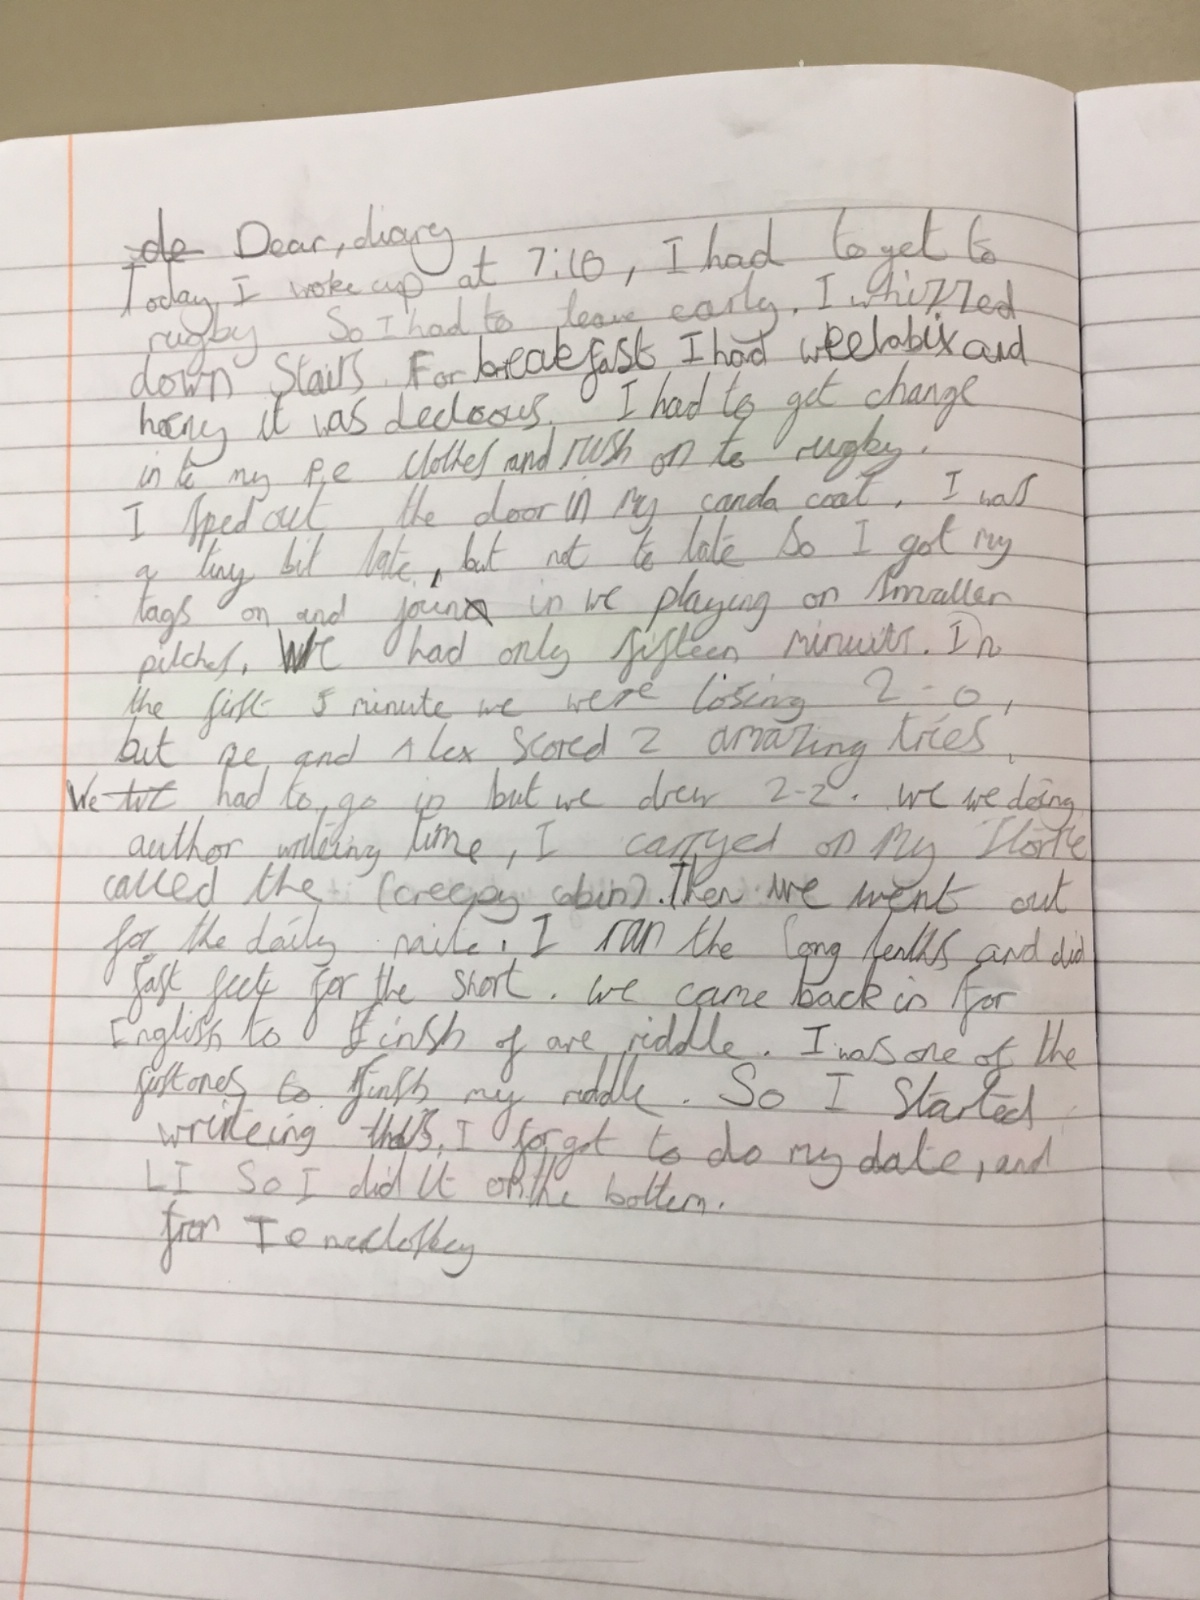 de Dear, diary
Today, I woke up at 7:10, I had to get to
rugby So I had to leave early. I whizzed
down Stairs. For breakfast I had weelabix and
honey it was . I had to get change
in to my p.e clothes and rush on to rugby.
I sped out the door in my canda coat. I was
a tiny bit late, but not to late So I got my
tags on and in we playing on smaller
pitches. We had only fifteen . In
the first 5 minute we were losing 2-0,
but and Alex Scored 2 amazing tries.
We had to go in but we drew 2-2. We we doing
author time, I carryed on My
called the (creepy cabin). Then we went out
for the daily mile. I ran the long and did
fast feet for the short. We came back in for
English to finsh of are riddle. I was one of the
first ones to finsh my riddle. So I Started
this. I forgot to do my date, and
LI So I did it on the bottem.
from